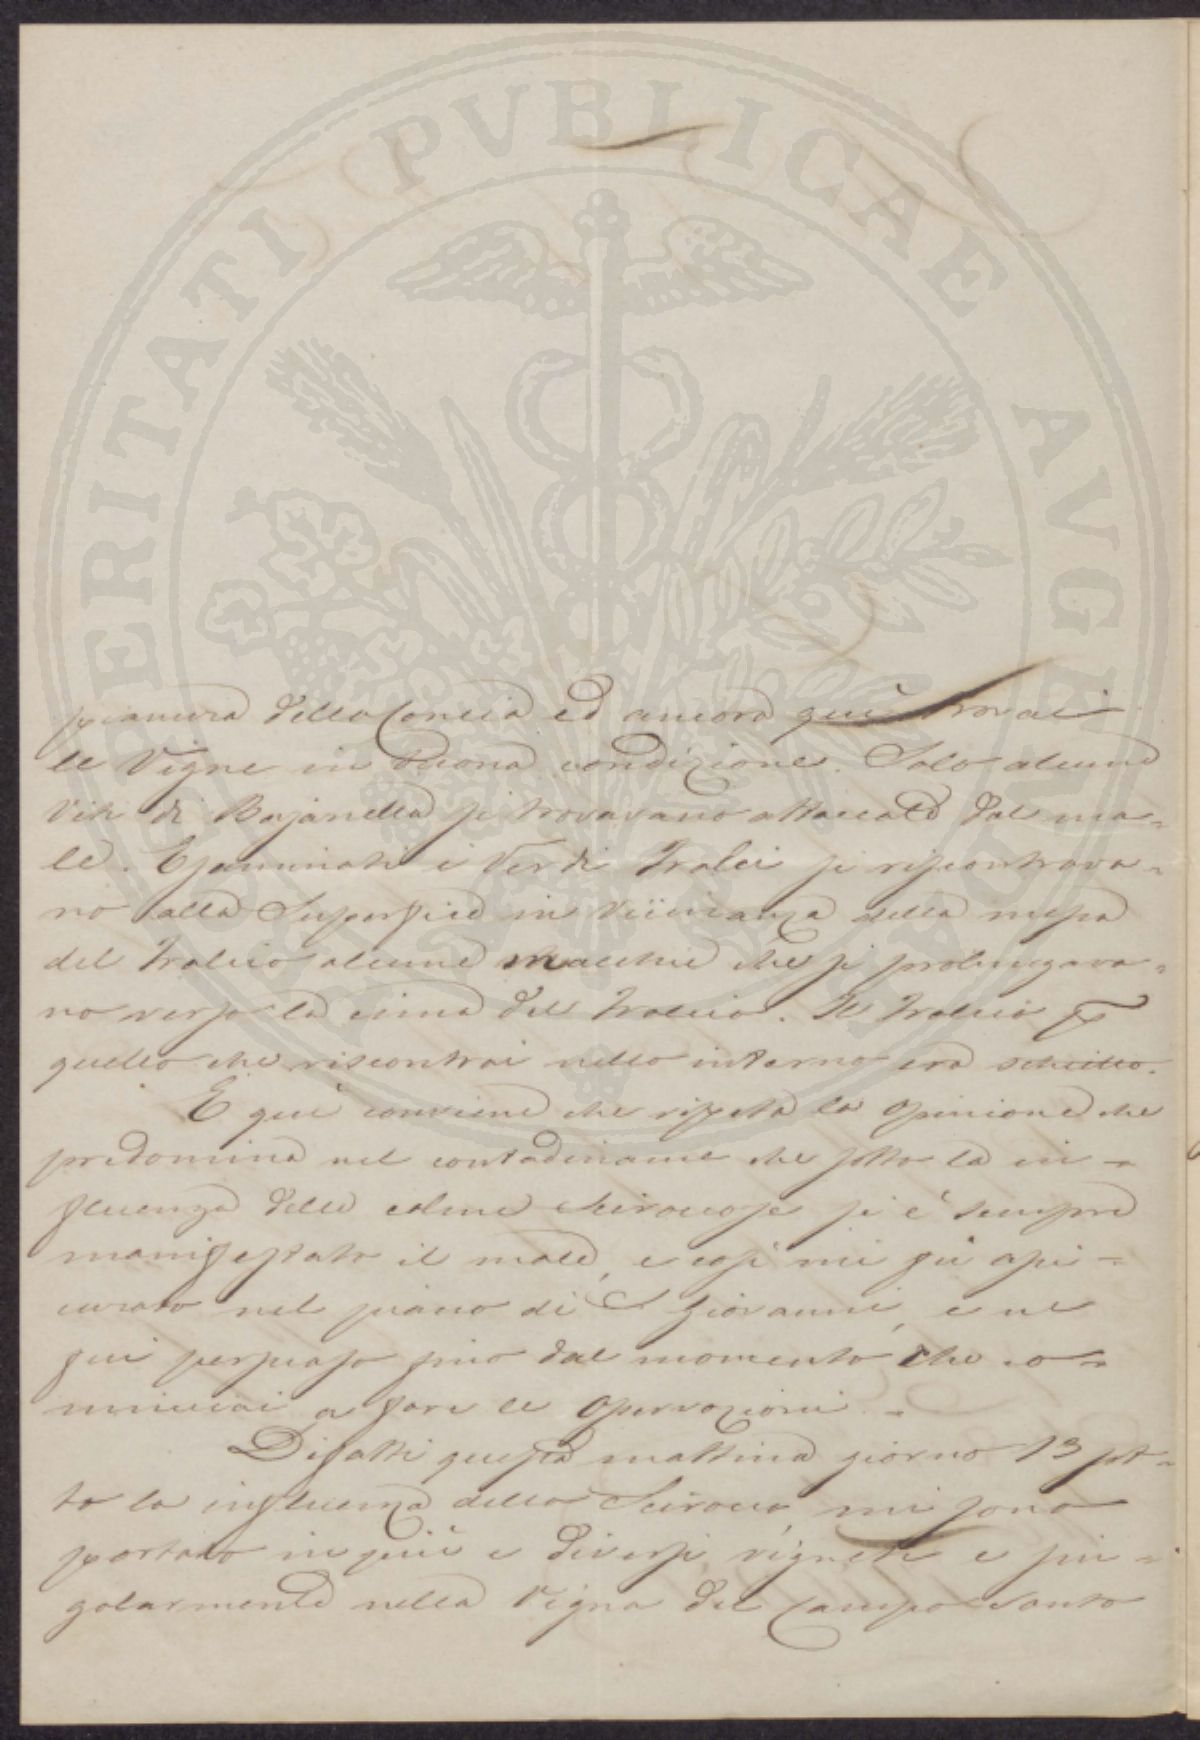 PROSPERITATI PVBLICAE AVGENDAE
pianura della Concia ed ancora quì trovai
le Vigne in buona condizione. Solo alcune
Viti di Bajanella si trovavano attaccate dal ma=
le. Esaminati i Verdi Tralci si riscontrava=
no alla Superficie in Viicinanza della messa
del Tralcio alcune Macchie che si prolungava=
no verso la cima del Tralcio. Il Tralcio per
quello che riscontrai nello interno era schietto.
E quì conviene che ripeta la Opinione che
predomina nel contadiname che sotto la in=
fluenza delle calme Sciroccose si è sempre
manifestato il male, e così mi fù assi=
curato nel piano di S Giovanni, e ne
fui persuaso fino dal momento che co=
minciai a fare le Osservazioni. -
Difatti questa mattina giorno 13 sot=
to la influenza dello Scirocco mi sono
portato in più e diversi vigneti e sin=
golarmente nella Vigna del Campo Santo